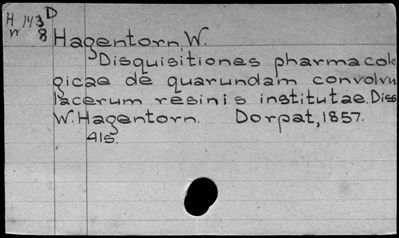 H 143 D
W 8
Hagentorn, W.
Disquisitiones pharmacolo
gicae de quarundam convolvu
lacerum resinis institutae. Diss
W. Hagentorn. Dorpat, 1857.
41s.